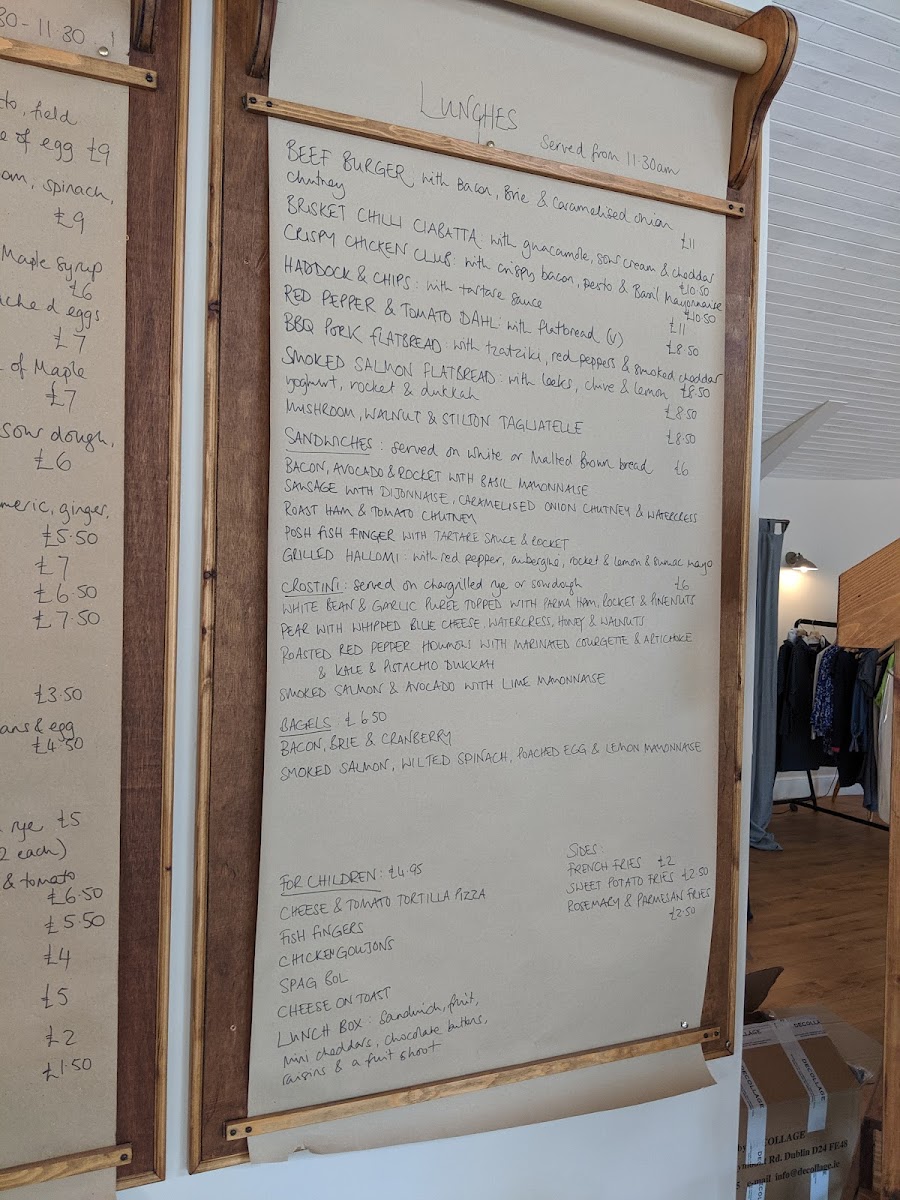 30 - 11.30 !
to, field
e of egg £9
spinach,
£9
Maple Syrup
£6
eggs
£7
of Maple
£7
sourdough,
£6
ginger,
£5.50
£7
£6.50
£7.50
£3.50
& egg
£4.50
rye £5
2 each)
& tomato
£6.50
£5.50
£4
£5
£2
£1.50
LUNCHES
Served from 11.30am
BEEF BURGER: with Bacon, Brie & Caramelised Onion
Chutney £11
BRISKET CHILLI CIABATTA: with guacamole, sour cream & cheddar
£10.50
CRISPY CHICKEN CLUB: with crispy bacon, pesto & Basil Mayonnaise
£10.50
HADDOCK & CHIPS: with tartare sauce £11
RED PEPPER & TOMATO DAHL: with flatbread (v) £8.50
BBQ PORK FLATBREAD: with tzatziki, red peppers & smoked cheddar
£8.50
SMOKED SALMON FLATBREAD: with leeks, chive & lemon
yoghurt, rocket & dukkah £8.50
MUSHROOM, WALNUT & STILTON TAGLIATELLE £8.50
SANDWICHES: served on white or Malted Brown bread £6
BACON, AVOCADO & ROCKET WITH BASIL MAYONNAISE
SAUSAGE WITH DIJONNAISE, CARAMELISED ONION CHUTNEY & WATERCRESS
ROAST HAM & TOMATO CHUTNEY
POSH FISH FINGER WITH TARTARE SAUCE & ROCKET
GRILLED HALLOMI: with red pepper, aubergine, rocket & lemon & Sumac mayo
CROSTINI: served on chargrilled rye or sourdough £6
WHITE BEAN & GARLIC PUREE TOPPED WITH PARMA HAM, ROCKET & PINENUTS
PEAR WITH WHIPPED BLUE CHEESE, WATERCRESS, HONEY & WALNUTS
ROASTED RED PEPPER HOUMOUS WITH MARINATED COURGETTE & ARTICHOKE
& KALE & PISTACHIO DUKKAH
SMOKED SALMON & AVOCADO WITH LIME MAYONNAISE
BAGELS £6.50
BACON, BRIE & CRANBERRY
SMOKED SALMON, WILTED SPINACH, POACHED EGG & LEMON MAYONNAISE
FOR CHILDREN: £4.95
CHEESE & TOMATO TORTILLA PIZZA
FISH FINGERS
CHICKEN GOUJONS
SPAG BOL
CHEESE ON TOAST
LUNCH BOX: Sandwich, fruit,
mini cheddars, chocolate buttons,
raisins & a fruit shoot
SIDES:
FRENCH FRIES £2
SWEET POTATO FRIES £2.50
ROSEMARY & PARMESAN FRIES
£2.50
DECOLLAGE
DECOLLAGE
DECOLLAGE
by DECOLLAGE
Rd. Dublin D24 FE48
e-mail info@decollage.ie